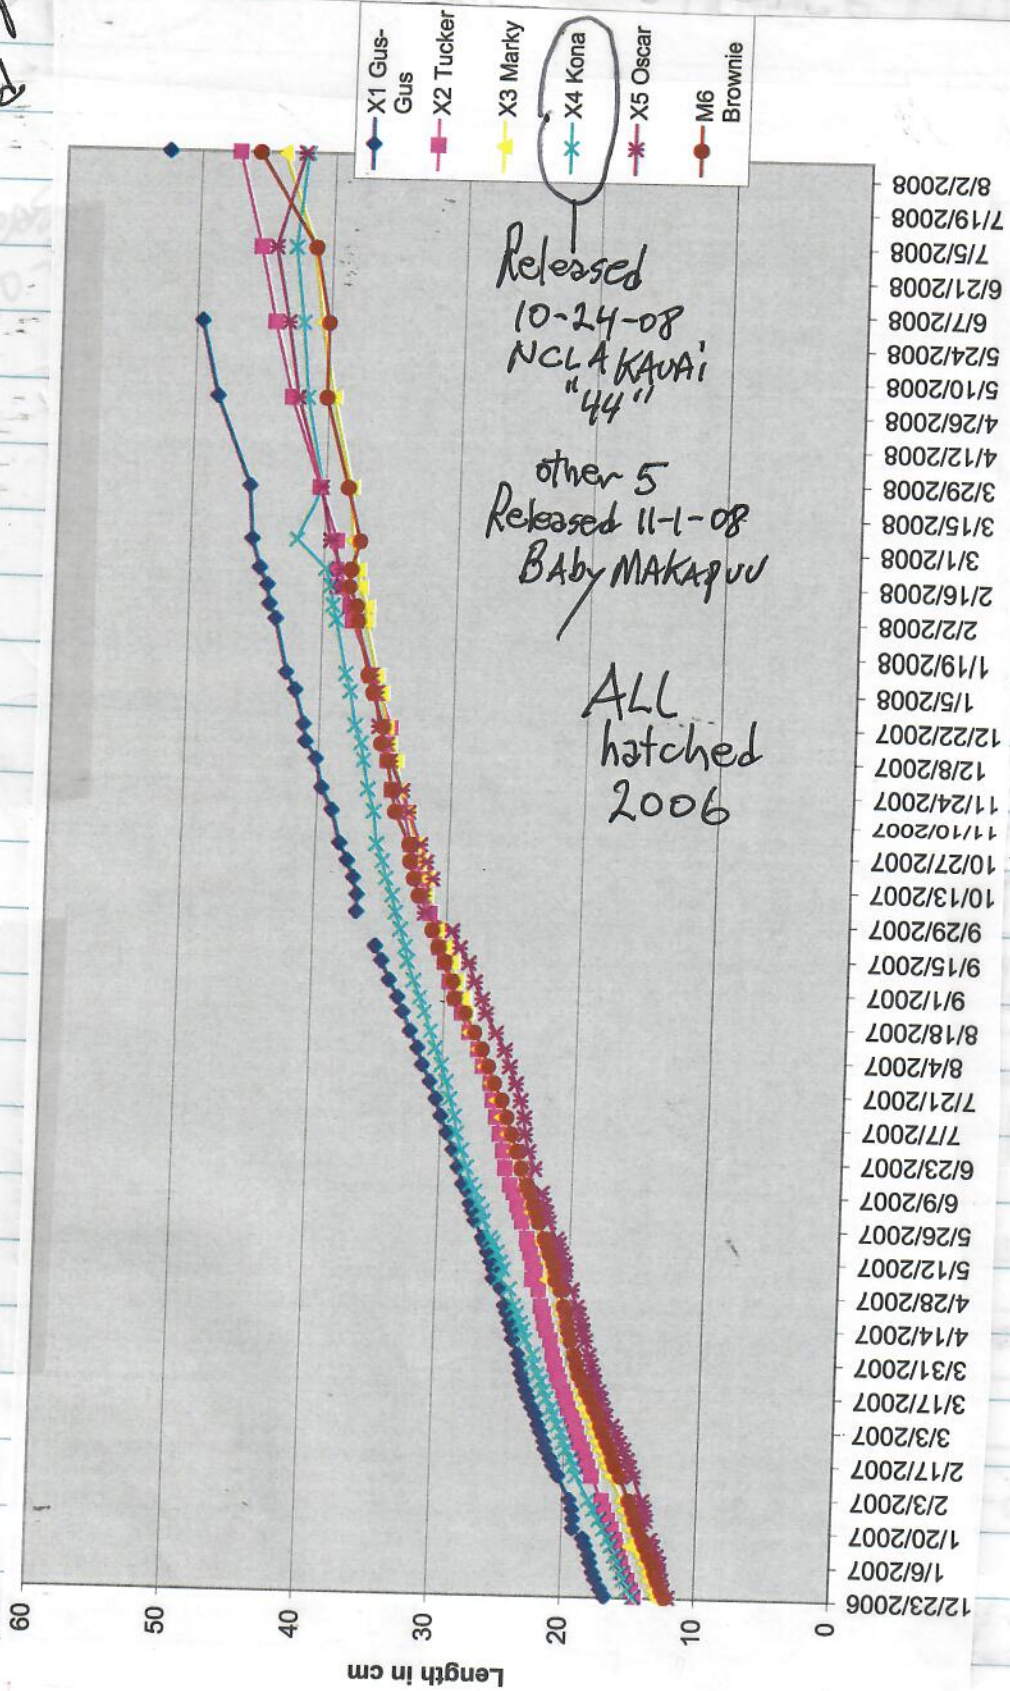 X1 Gus-
Gus
X2 Tucker
X3 Marky
X4 Kona
X5 Oscar
M6
Brownie
Released
10-24-08
NCLA KAUAi
"44"
other 5
Released 11-1-08
BAby MAKAPUU
ALL
hatched
2006
60
50
40
30
20
10
0
Length in cm
12/23/2006
1/6/2007
1/20/2007
2/3/2007
2/17/2007
3/3/2007
3/17/2007
3/31/2007
4/14/2007
4/28/2007
5/12/2007
5/26/2007
6/9/2007
6/23/2007
7/7/2007
7/21/2007
8/4/2007
8/18/2007
9/1/2007
9/15/2007
9/29/2007
10/13/2007
10/27/2007
11/10/2007
11/24/2007
12/8/2007
12/22/2007
1/5/2008
1/19/2008
2/2/2008
2/16/2008
3/1/2008
3/15/2008
3/29/2008
4/12/2008
4/26/2008
5/10/2008
5/24/2008
6/7/2008
6/21/2008
7/5/2008
7/19/2008
8/2/2008